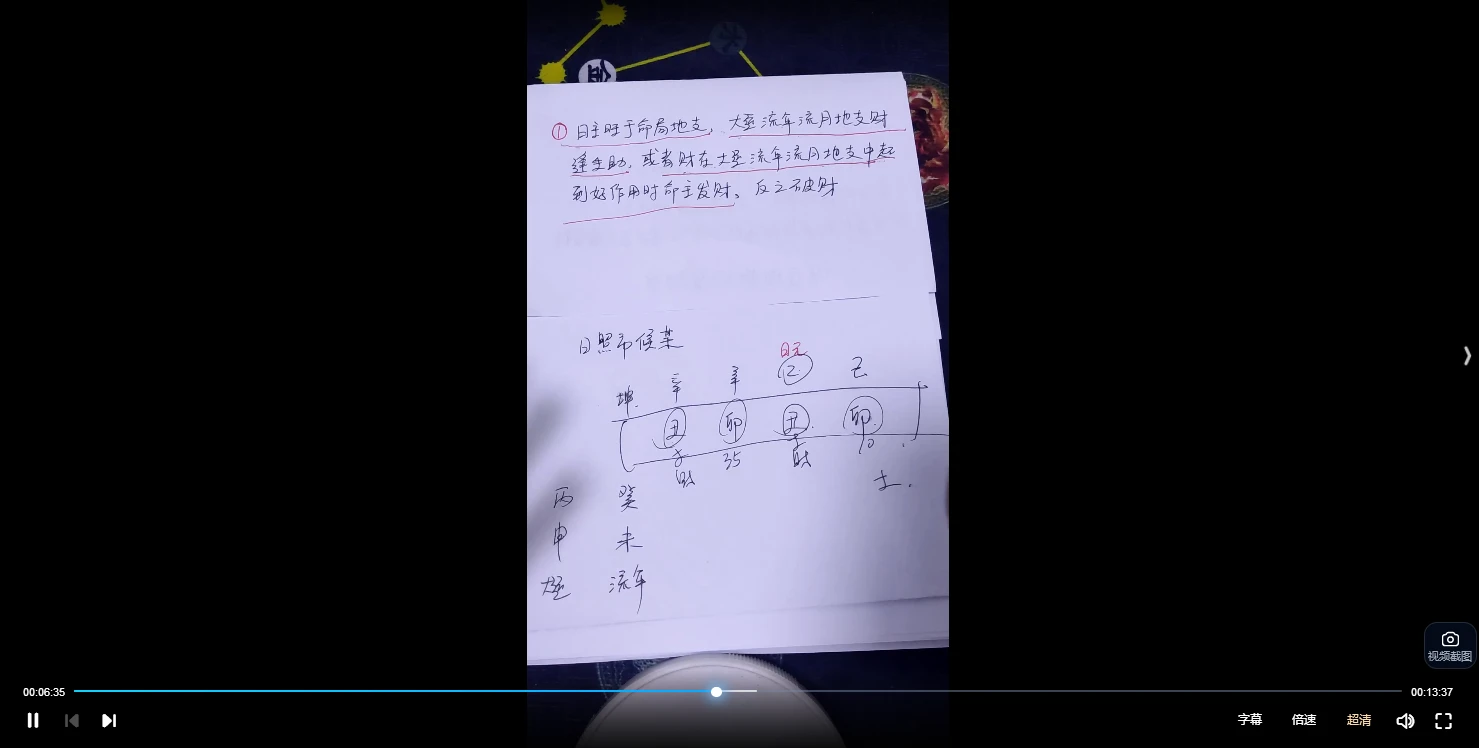 火
金
① 日主旺于命局地支，大运流年流月地支财
逢生助，或者财在大运流年流月地支中起
到好作用时命主发财。反之不破财
日照市候某
日元
坤 辛 辛 己 己
丑 卯 丑 卯
35
财 财
土.
丙 癸
申 未
大运 流年
视频截图
00:06:35
00:13:37
字幕 倍速 超清